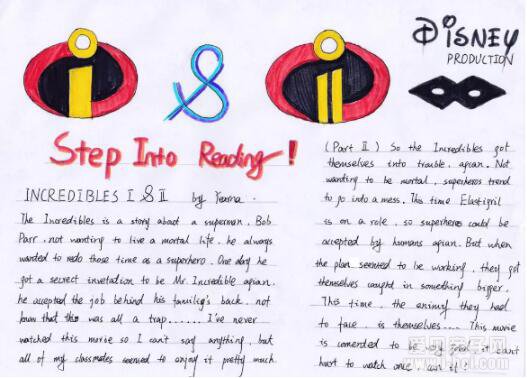 DISNEY
PRODUCTION
i & ii
Step Into Reading!
INCREDIBLES I & II by
The Incredibles is a story about a superman. Bob
Parr. not wanting to live a mortal life. he always
wanted to redo those time as a superhero. One day he
got a secrect invetation to be Mr. Incredible agian.
he accepted the job behind his familig's back. not
known that this was all a trap....... I've never
watched this movie so I can't say anything, but
all of my classmates seemed to enjoy it pretty much.
(Part II) So the Incredibles got
themselves into trouble. agian. Not
wanting to be mortal, superheros trend
to go into a mess. This time Elastigril
is on a role, so superheros could be
accepted by humans agian. But when
the plan seemed to be working, they got
themselves caught in something bigger.
This time, the enimy they had
to face. is themselves.... This movie
is comented to be very great it cant
hurt to watch once can it?